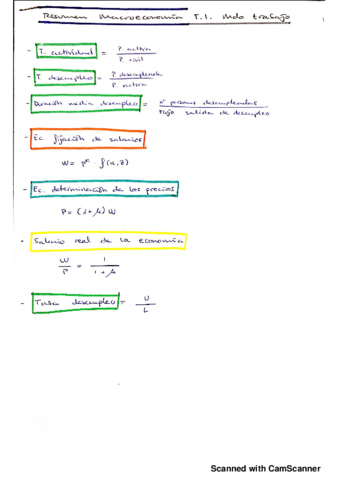 Resumen Macroeconomía T.1. Mdo trabajo
1
- T. actividad = P. activa / P. civil
- T. desempleo = P. desempleada / P. activa
- Duración media desempleo = nº personas desempleadas / Flujo salida de desempleo
- Ec. fijación de salarios
W = Pᵉ f(u, z)
- Ec. determinación de los precios
P = (1+μ) W
- Salario real de la economía
W / P = 1 / 1+μ
- Tasa desempleo = U / L
Scanned with CamScanner